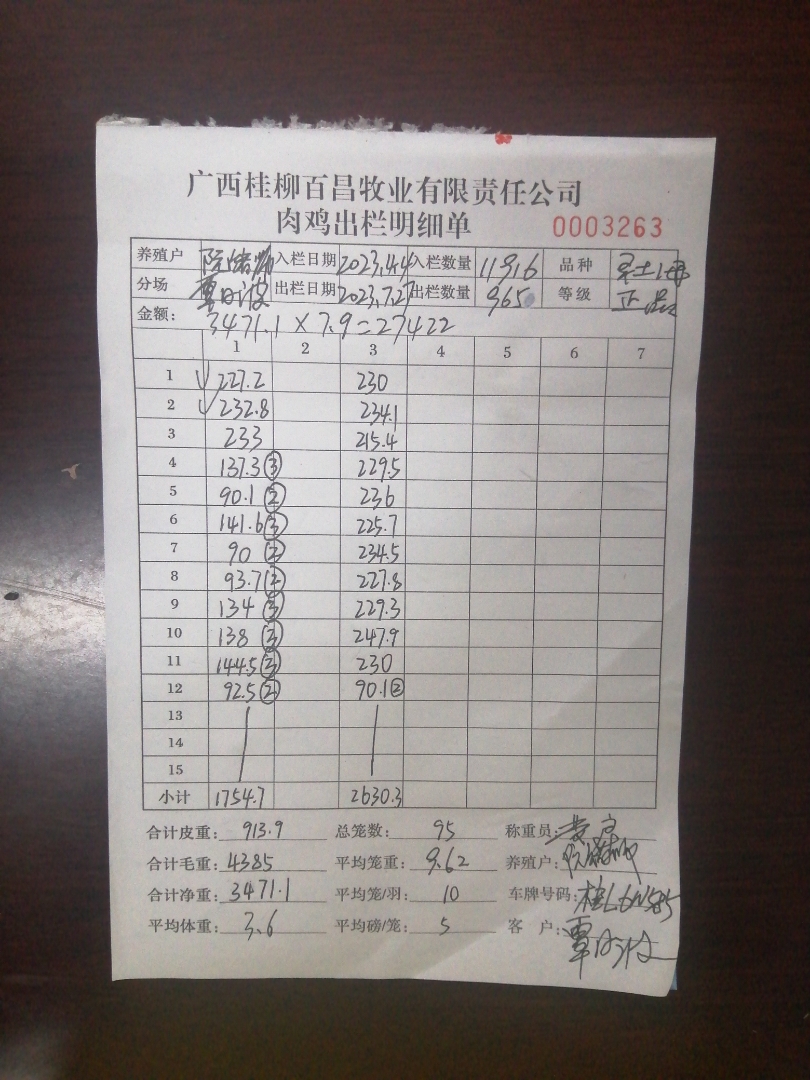 广西桂柳百昌牧业有限责任公司
肉鸡出栏明细单 0003263
养殖户 入栏日期 2023.4.4 入栏数量 11916 品种
分场 覃日波 出栏日期 2023.7.27 出栏数量 965 等级 正品
金额: 3471.1 × 7.9 = 27422
1 2 3 4 5 6 7
1 227.2 230
2 232.8 234.1
3 233 215.4
4 137.3③ 229.5
5 90.1② 236
6 141.6③ 225.7
7 90② 234.5
8 93.7② 227.8
9 134③ 229.3
10 138③ 247.9
11 144.5③ 230
12 92.5② 90.1②
13
14
15
小计 1754.7 2630.3
合计皮重: 913.9 总笼数: 95 称重员:
合计毛重: 4385 平均笼重: 9.62 养殖户:
合计净重: 3471.1 平均笼/羽: 10 车牌号码: 桂L6W585
平均体重: 3.6 平均磅/笼: 5 客户: 覃日波